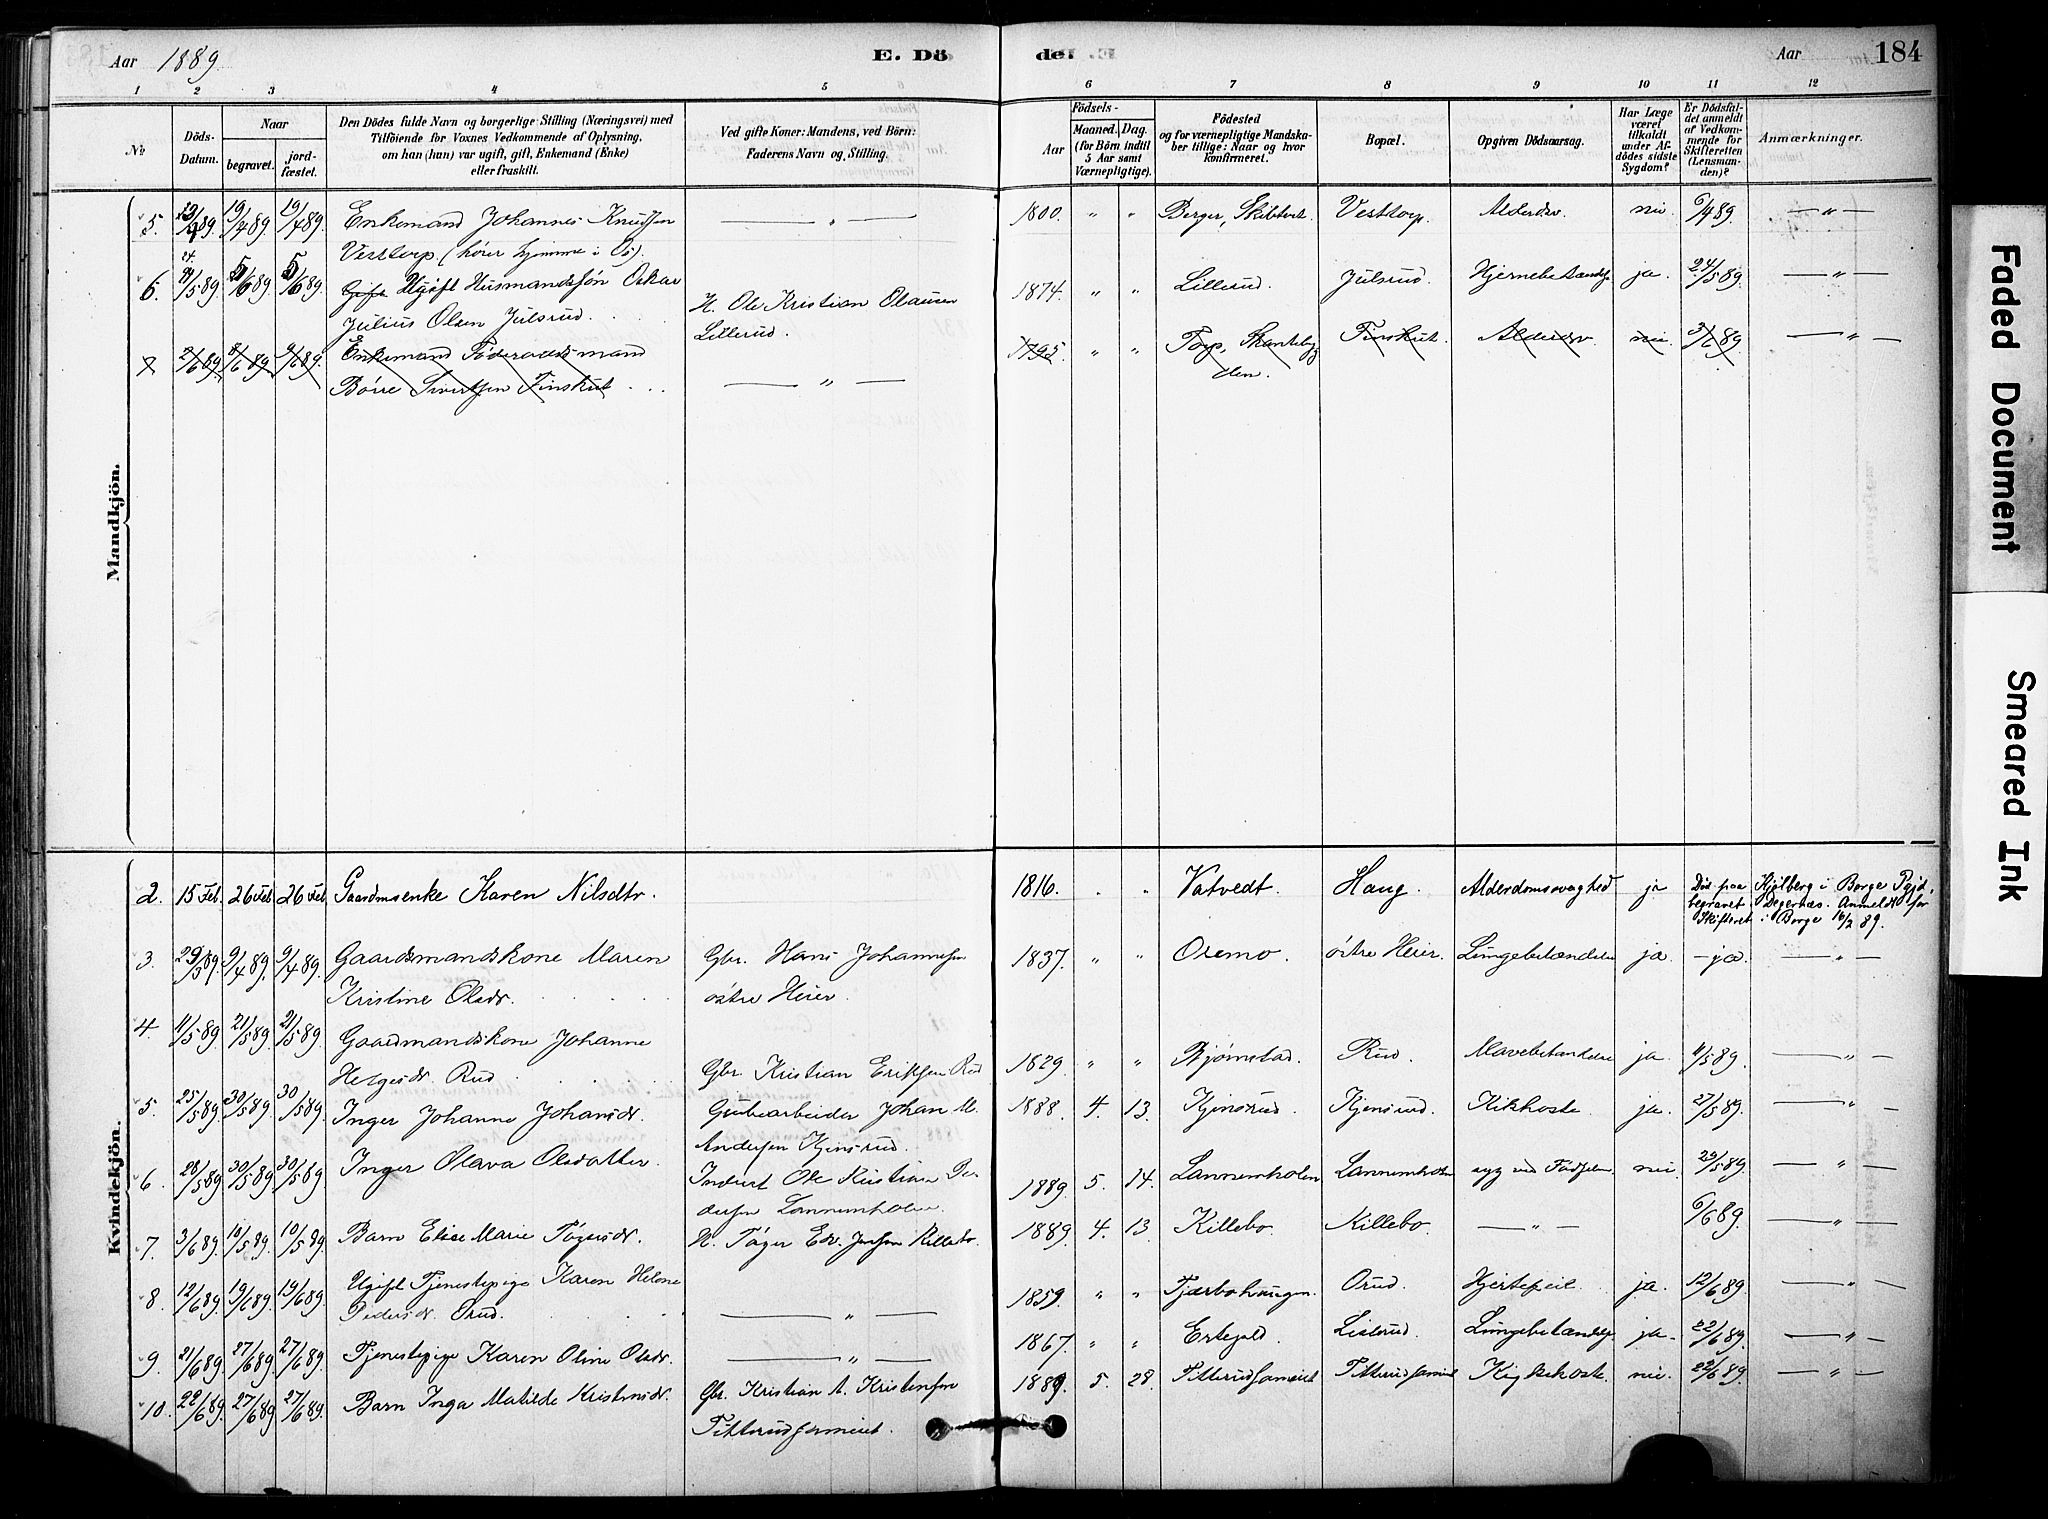 Aar 1889 E. Dö de. Aar 184
1 2 3 4 5 6 7 8 9 10 11 12
No
Döds-Datum.
Naar
begravet.
jord-fæstet.
Den Dödes fulde Navn og borgerlige Stilling (Næringsvei) med
Tilföiende for Voxnes Vedkommende af Oplysning,
om han (hun) var ugift, gift, Enkemand (Enke)
eller fraskilt.
Ved gifte Koner: Mandens, ved Börn:
Faderens Navn og Stilling.
Födsels-
Aar
Maaned. Dag.
(for Börn indtil
5 Aar samt
Værnepligtige).
Födested
og for værnepligtige Mandska-
ber tillige: Naar og hvor
konfirmeret.
Bopæl.
Opgiven Dödsaarsag.
Har Læge
været
tilkaldt
under Af-
dödes sidste
Sygdom?
Er Dödsfal-
det anmeldt
af Vedkom-
mende for
Skifteretten
(Lensman-
den)?
Anmærkninger.
Mandkjön.
5. 19/489. 19/489. Enkemand Johannes Knudsen — " — 1800. " " Berger, Skibtvet. Vesttorp. Alderdsv. nei 6/489. — " —
Vesttorp. (hører hjemme i Os).
6. 24/589 5/689 5/689. Gift Ugift Husmandssøn Oskar
Julius Olsen Julsrud.
H. Ole Kristian Olausen
Lillerud.
1874. " " Lillerud. Julsrud. Hjernebetændelse ja. 24/589. — " —
7 2/689. 8/689 9/689. Enkemand Föderaadsmand
Börre Sivertsen Finskut — " —
1795 " " Torp, Skantebyg
den. Finskut. Alderdsv nei. 3/689. — " —
Kvindekjön.
2. 15 Feb. 26 Feb 26 Feb Gaardmsenke Karen Nilsdtr. 1816. " " Vatvedt. Haug. Alderdomssvaghed ja Död paa Kjølberg i Borge Pgjd.
begravet i Degernæs. Anmeldt for
Skifteret i Borge 16/2 89.
3. 29/389. 9/489. 9/489. Gaardsmandskone Maren
Kristine Olsdr.
Gbr. Hans Johannesen
östre Heier.
1837. " " Oremo. östre Heier. Lungebetændelse ja — ja. — " —
4. 11/589. 21/589. 21/589. Gaardmandskone Johanne
Helgesdr. Rud
Gbr. Kristian Eriksen Rud
1829. " " Bjørnstad. Rud. Mavebetændelse ja. 11/589. — " —
5. 25/589. 30/589. 30/589. Inger Johanne Johansdr. Grubearbeider Johan M.
Andersen Kjensrud.
1888. 4. 13. Kjensrud. Kjensrud. Kikhoste. ja. 27/589. — " —
6. 28/589 30/589. 30/589 Inger Olava Olsdatter. Inderst Ole Kristian Pe-
dersen Lannemholen.
1889. 5. 14. Lannemholen Lannemholen syg ved Födselen nei. 29/589. — " —
7. 3/689. 10/589. 10/589 Barn Elise Marie Tögersdr. H. Töger Edv. Jensen Killebo. 1889. 4. 13. Killebo. Killebo. — " — 6/689. — " —
8. 12/689. 19/689. 19/689 Ugift Tjenestepige Karen Helene
Pedersdr. Orud. — " —
1859. " " Tjærbohaugen. Orud. Hjertefeil. ja. 12/689. — " —
9. 21/689. 27/689. 27/689. Tjenestepige Karen Oline Olsdr. — " — 1867. " " Ertegd. Lislerud. Lungebetændelse ja. 22/689. — " —
10. 22/689. 27/689 27/689. Barn Inga Matilde Kristiansdr. Gbr. Kristian A. Kristensen
Titterudsameiet.
1889. 5. 28. Titterudsameiet Titterudsameiet Kighoste. nei. 22/689. — " —
Faded Document
Smeared Ink